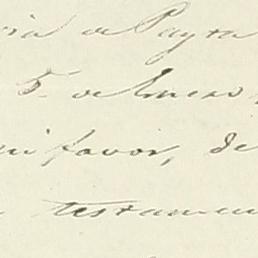 ria de Payta
5 de Enero
mi favor, de
testamen